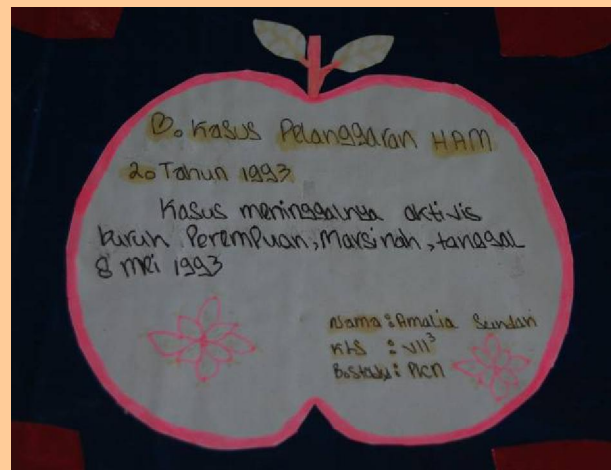 B. Kasus Pelanggaran HAM
2. Tahun 1993
Kasus meninggalnya aktivis
buruh Perempuan, Marsinah, tanggal
8 mei 1993
Nama : Amalia Sundari
Kls : VII³
B.study : PKN